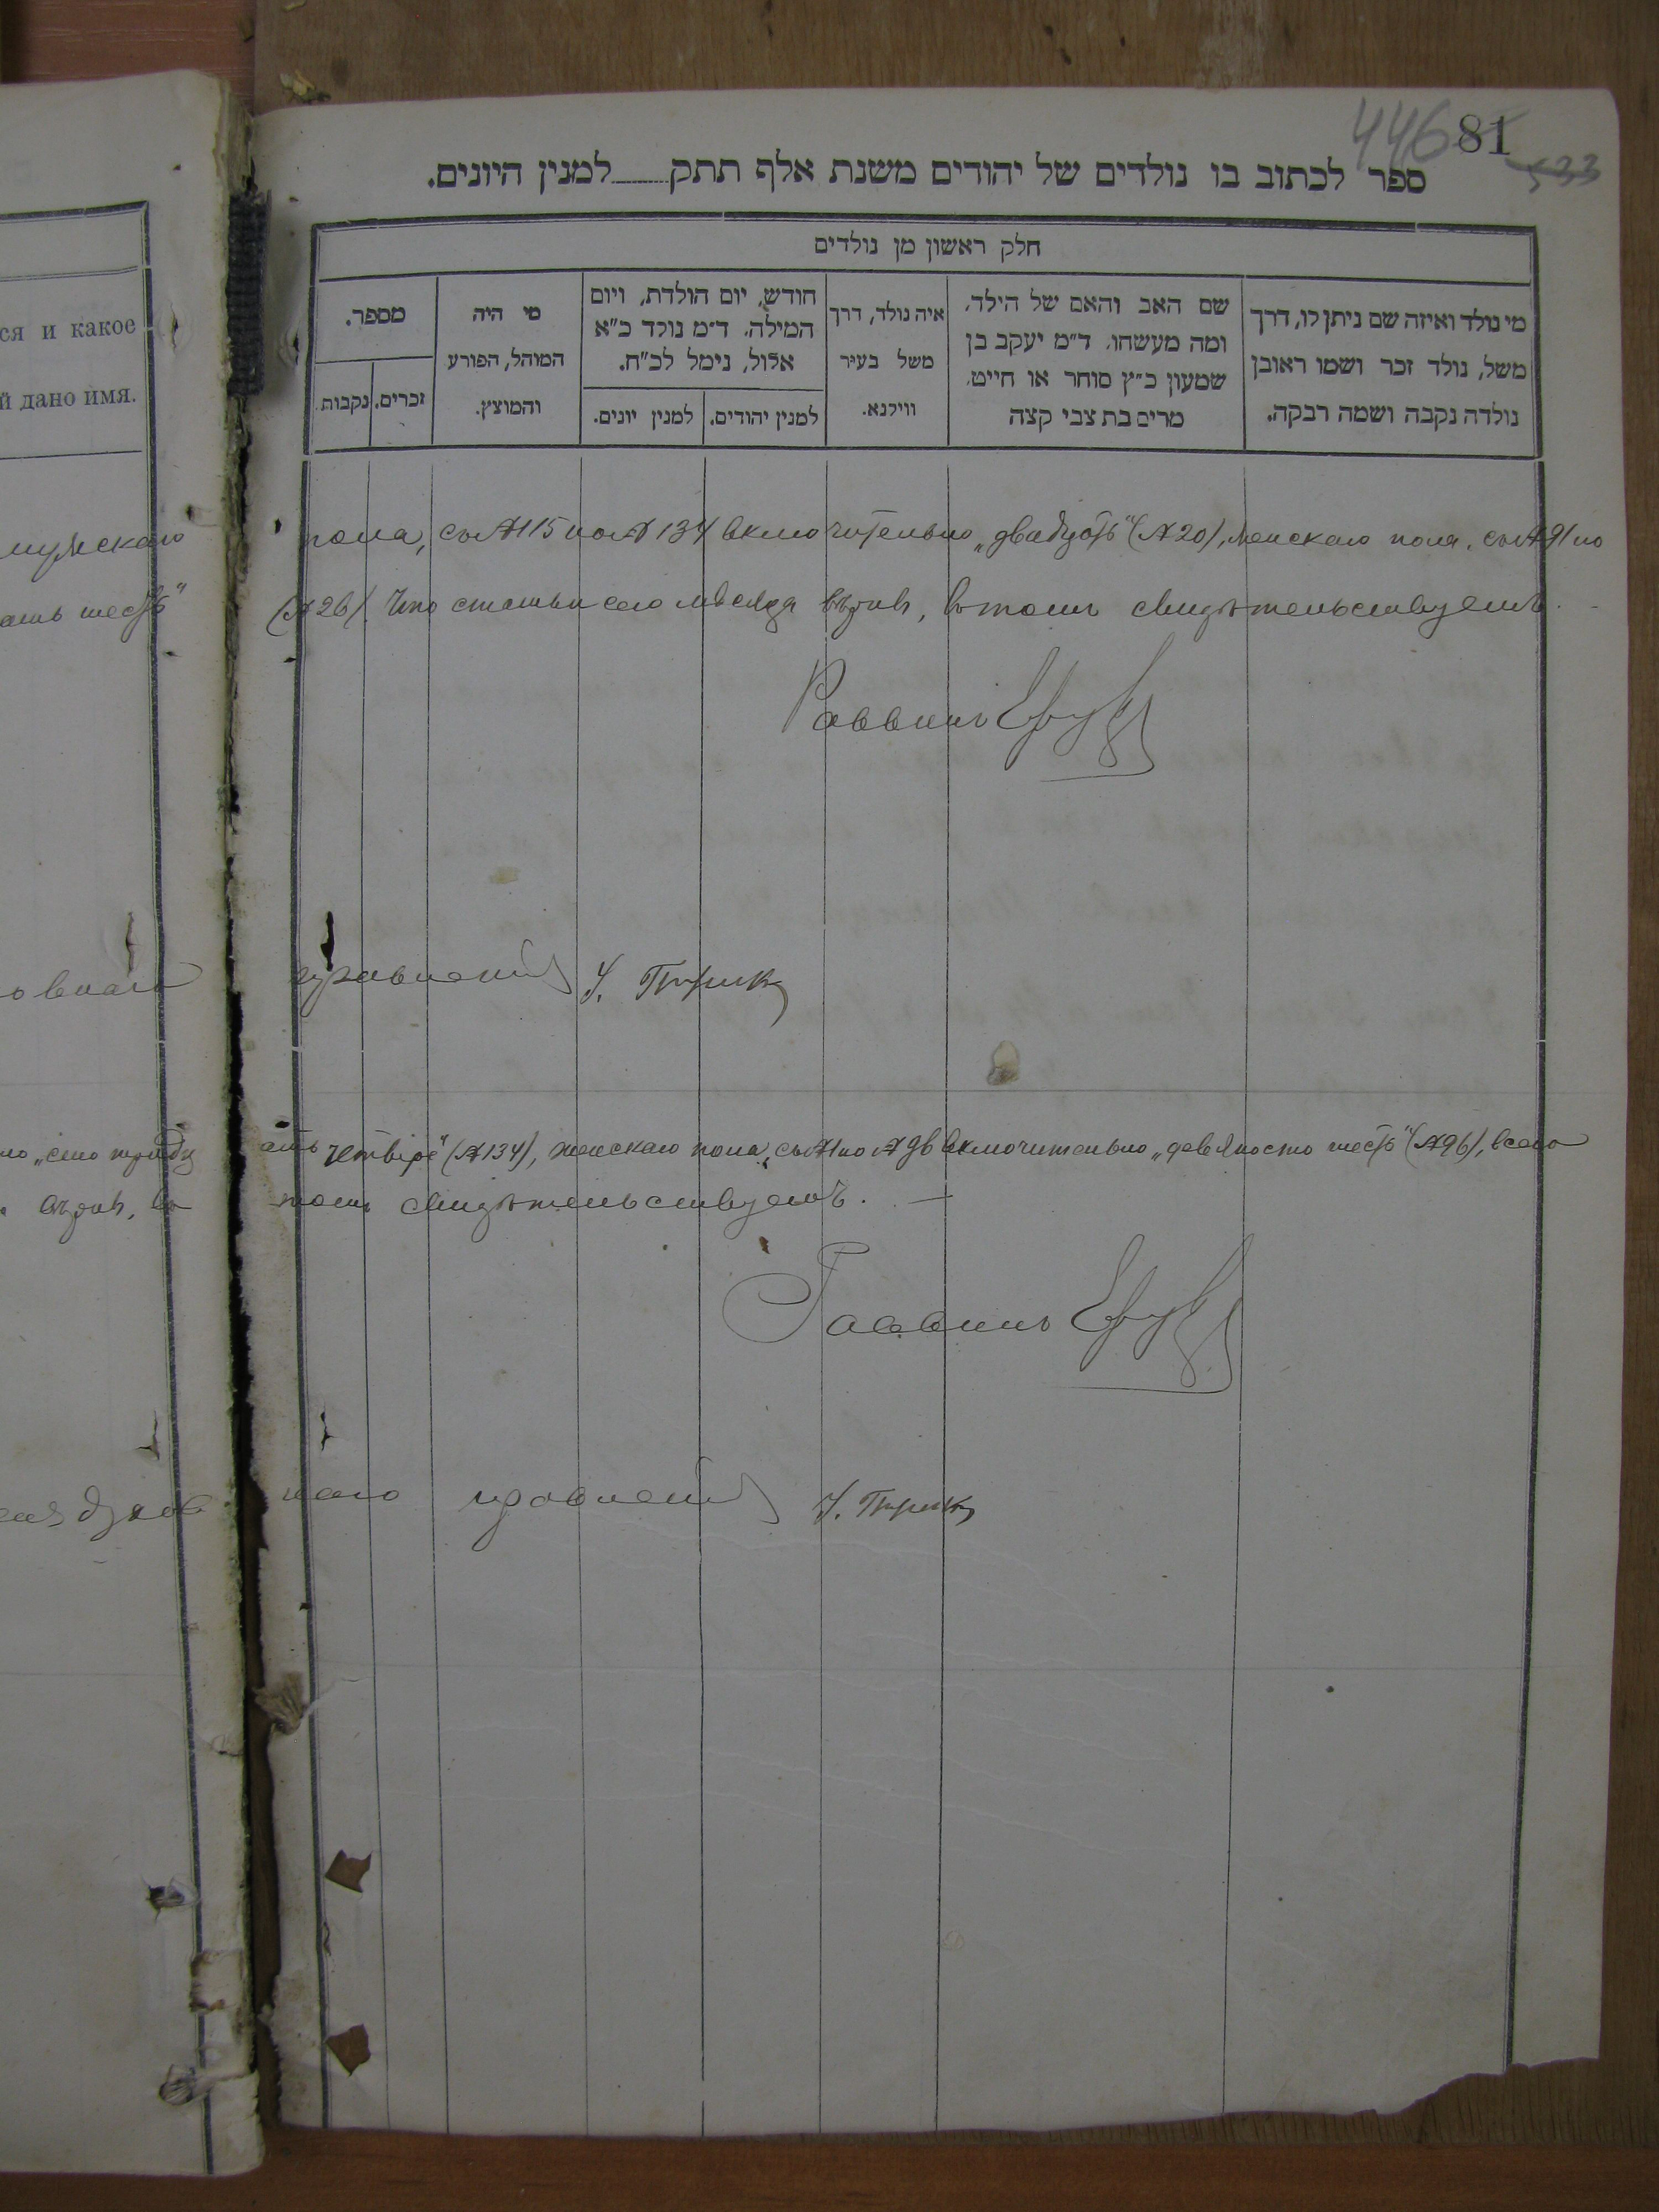 446 81
533
ספר לכתוב בו נולדים של יהודים משנת אלף תתק למנין היונים.
חלק ראשון מן נולדים
מי נולד ואיזה שם ניתן לו, דרך
משל, נולד זכר ושמו ראובן
נולדה נקבה ושמה רבקה.
שם האב והאם של הילד,
ומה מעשהו, ד״מ יעקב בן
שמעון כ״ץ סוחר או חייט,
מרים בת צבי קצה
איה נולד, דרך
משל בעיר
ווילנא.
חודש, יום הולדת, ויום
המילה, ד״מ נולד כ״א
אלול, נימל לכ״ח.
למנין יהודים.
למנין יונים.
מי היה
המוהל, הפורע
והמוצץ.
מספר.
זכרים.
נקבות.
ся и какое
й дано имя.
мужскаго пола, съ № 115 по № 134 включительно „двадцать“ (№ 20), женскаго пола, съ № 91 по
ать шесть“ (№ 26). Что статьи сего месяца верны, въ томъ свидетельствуемъ. -
Раввинъ
овнаго правленія
но „сто тридц ать четыре“ (№ 134), женскаго пола, съ № 1 по № 96 включительно „девяносто шесть“ (№ 96), всего
верны, въ томъ свидетельствуемъ. —
Раввинъ
духов наго правленія